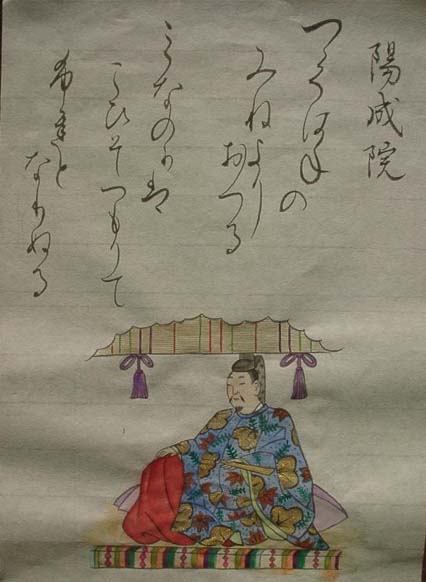 陽成院
つくはねの
みねより
おつる
みなのかは
こひそつもりて
ふちと
なりぬる